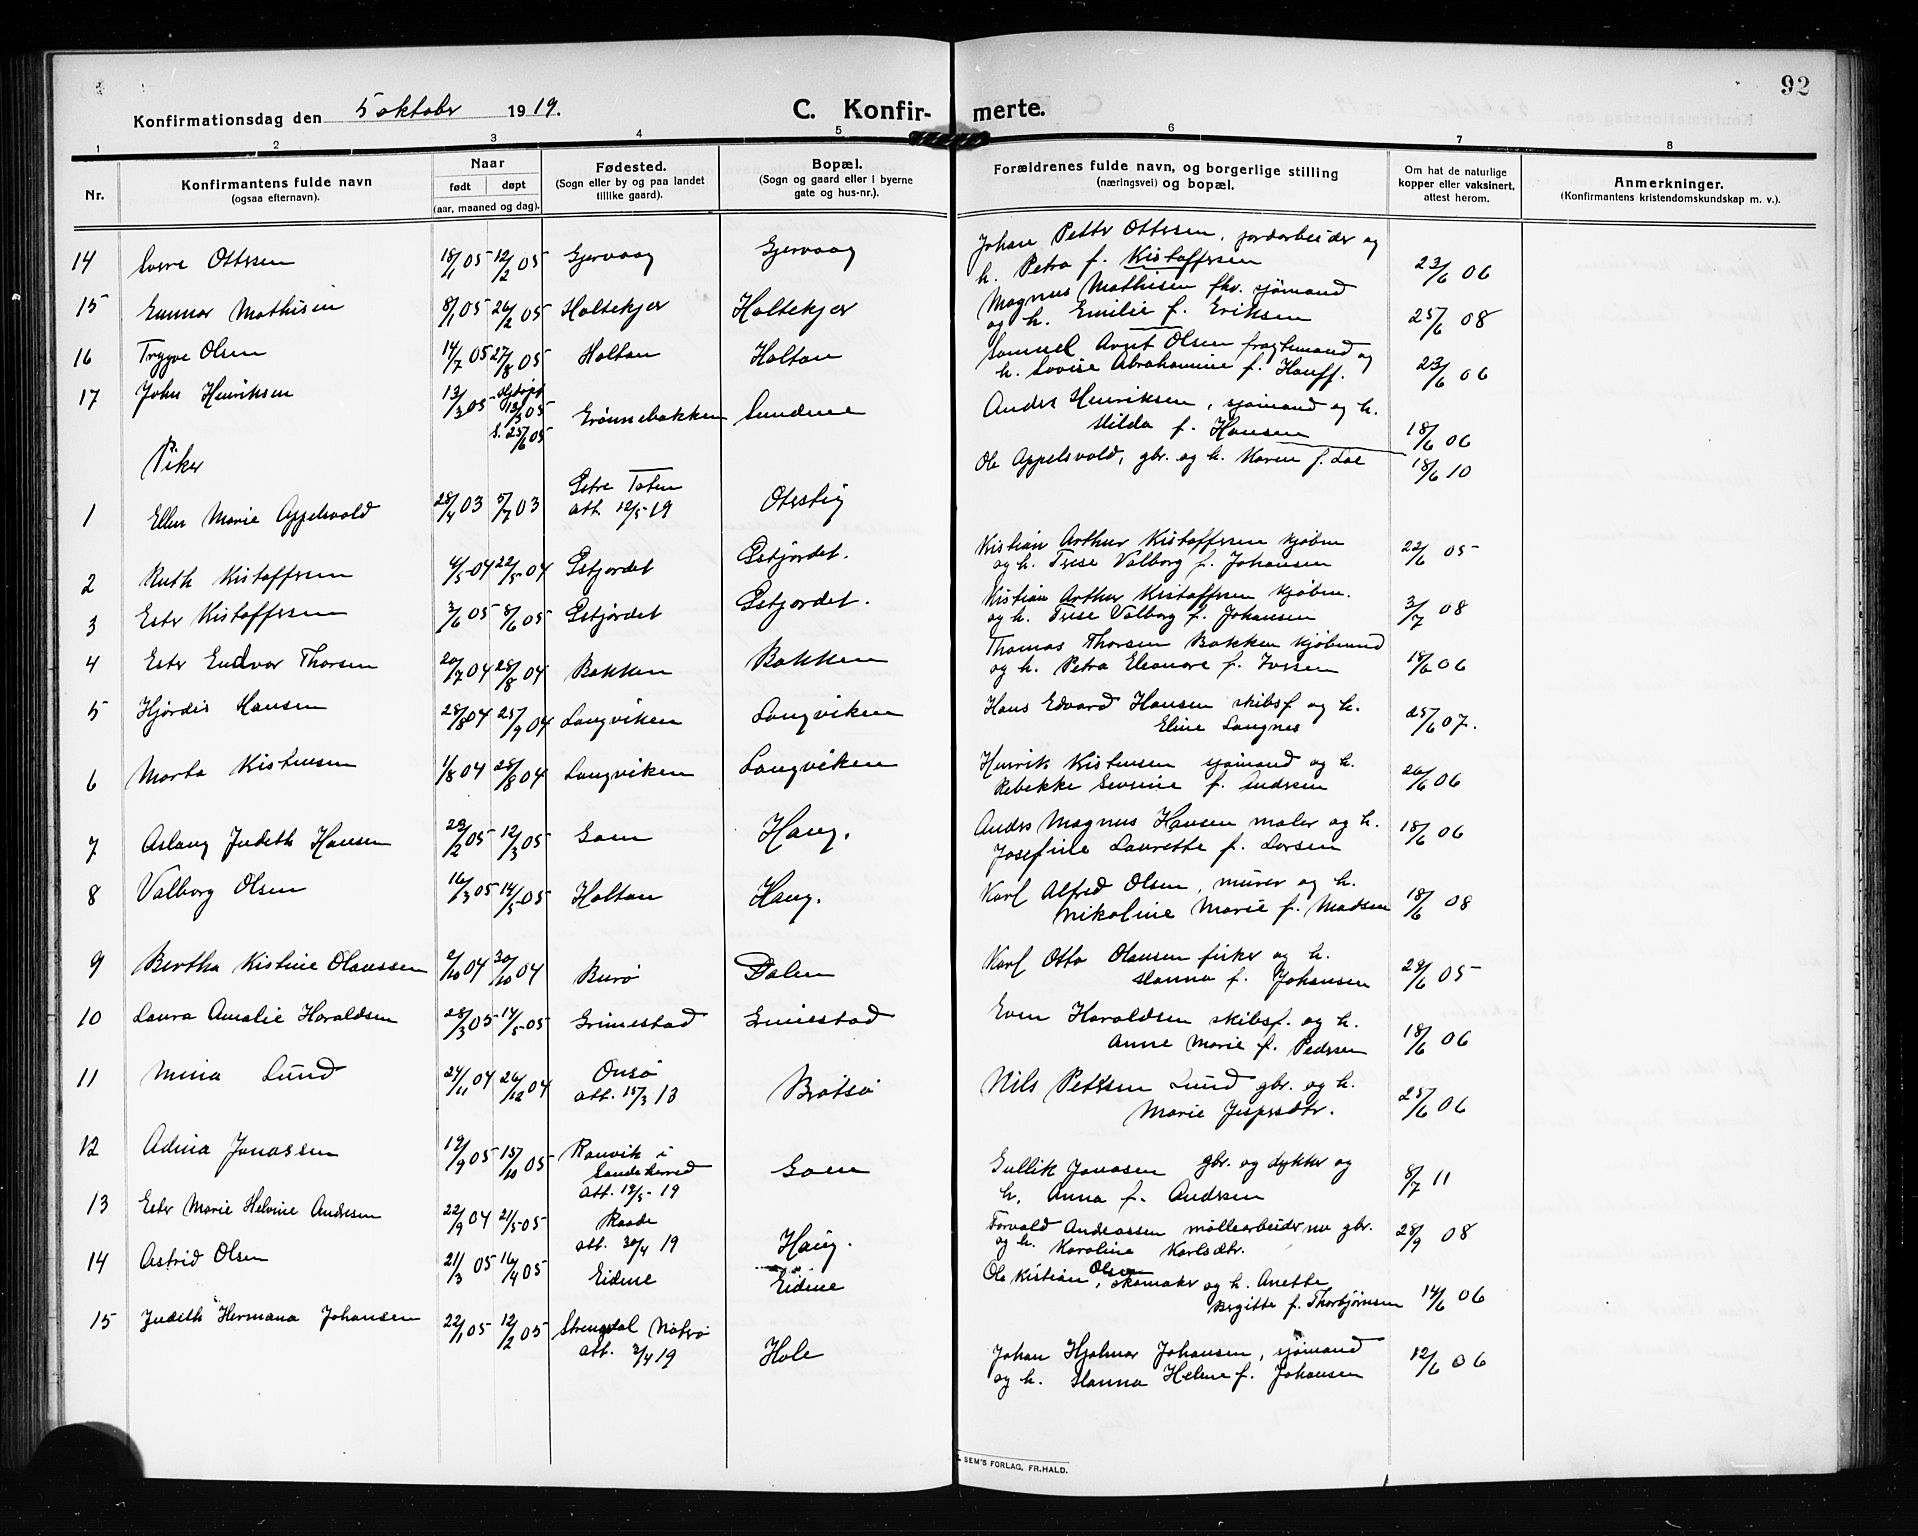 92
Konfirmationsdag den 5 oktober 1919. C. Konfirmerte.
1 2 3 4 5 6 7 8
Nr.
Konfirmantens fulde navn
(ogsaa efternavn).
Naar
født døpt
(aar, maaned og dag).
Fødested.
(Sogn eller by og paa landet
tillike gaard).
Bopæl.
(Sogn og gaard eller i byerne
gate og hus-nr.).
Forældrenes fulde navn, og borgerlige stilling
(næringsvei) og bopæl.
Om hat de naturlige
kopper eller vaksinert,
attest herom.
Anmerkninger.
(Konfirmantens kristendomskundskap m. v.).
14 Sverre Ottersen 18/1 05 12/2 05 Gjervaag Gjervaag
Johan Petter Ottersen, jordarbeider og
h. Petra f. Kristoffersen 23/6 06
15 Gunnar Mathisen 8/1 05 26/2 05 Holtekjær Holtekjær
Magnus Mathisen fhv. sjømand
og h. Emilie f. Eriksen 25/6 08
16 Trygve Olsen 14/7 05 27/8 05 Holtan Holtan
Samuel Arnt Olsen fragtemand og
h. Lovise Abrahamine f. Hauff. 23/6 06
17 John Henriksen 13/3 05 hjdøpt 13/3 05 S. 25/6 05 Grønnebakken Sundene
Anders Henriksen, sjømand og h.
Hilda f. Hansen 18/6 06
Piker
1 Ellen Marie Appelsvold 28/4 03 5/7 03 Østre Toten
att. 12/5 19 Oterstig
Ole Appelsvold, gbr. og h. Karen f. Loe 18/6 10
2 Ruth Kristoffersen 4/5 04 22/5 04 Østjordet Østjordet.
Kristian Arthur Kristoffersen kjøbm
og h. Trese Valborg f. Johansen 22/6 05
3 Ester Kristoffersen 3/6 05 8/6 05 Østjordet Østjordet.
Kristian Arthur Kristoffersen kjøbm.
og h. Trese Valborg f. Johansen 3/7 08
4 Ester Endvor Thorsen 20/7 04 28/8 04 Bakken Bakken
Thomas Thorsen Bakken kjøbmand
og h. Petra Eleonore f. Iversen 18/6 06
5 Hjørdis Hansen 28/8 04 25/9 04 Langviken Langviken
Hans Edvard Hansen skibsf og h.
Eline Langnes 25/6 07.
6 Marta Kristensen 1/8 04 28/8 04 Langviken Langviken
Henrik Kristensen sjømand og h.
Rebekke Severine f. Andersen 26/6 06
7 Aslaug Judith Hansen 23/2 05 12/3 05 Goen Haug.
Anders Magnus Hansen maler og h.
Josefine Laurette f. Larsen 18/6 06
8 Valborg Olsen 16/3 05 14/5 05 Holtan Haug.
Karl Alfred Olsen, murer og h.
Nikoline Marie f. Madsen 18/6 08
9 Bertha Kristine Olaussen 2/10 04 30/10 04 Burø Dalen
Karl Otto Olausen fisker og h.
Hanna f. Johansen 28/6 05
10 Laura Amalie Haraldsen 28/3 05 14/5 05 Grimestad Grimestad
Even Haraldsen skibsf. og h.
Anne Marie f. Pedersen 18/6 06
11 Mina Lund 24/11 04 26/12 04 Onsø
att. 15/3 13 Brøtsø
Nils Pettersen Lund gbr. og h.
Marie Jespersdtr. 25/6 06
12 Adina Jonassen 19/9 05 15/10 05 Ranvik i
Sandeherred
att. 12/5 19 Goen
Gullik Jonasen gbr. og dykker og
h. Anna f. Andersen 8/7 11
13 Ester Marie Helvine Andresen 22/9 04 21/5 05 Raade
att. 30/4 19 Haug.
Torvald Andreassen møllearbeider nu gbr.
og h. Karoline Karlsdtr. 28/9 08
14 Astrid Olsen 21/3 05 16/4 05 Eidene Eidene
Ole Kristian Olsen, skomaker og h. Anette
Bergitte f. Thorbjørnsen 14/6 06
15 Judith Hermana Johansen 22/1 05 12/2 05 Strengsdal Nøtterø
att. 2/4 19 Hole
Johan Hjalmar Johansen, sjømand
og h. Hanna Helene f. Johansen 12/6 06
SEM'S FORLAG, FR.HALD.